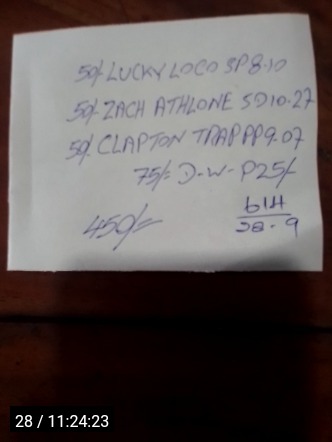 50/- LUCKY LOCO SP 8.10
50/- ZACH ATHLONE SD 10.27
50/- CLAPTON TRAP PP 9.07
75/= D-W-P 25/-
450/=
614
28 / 11:24:23